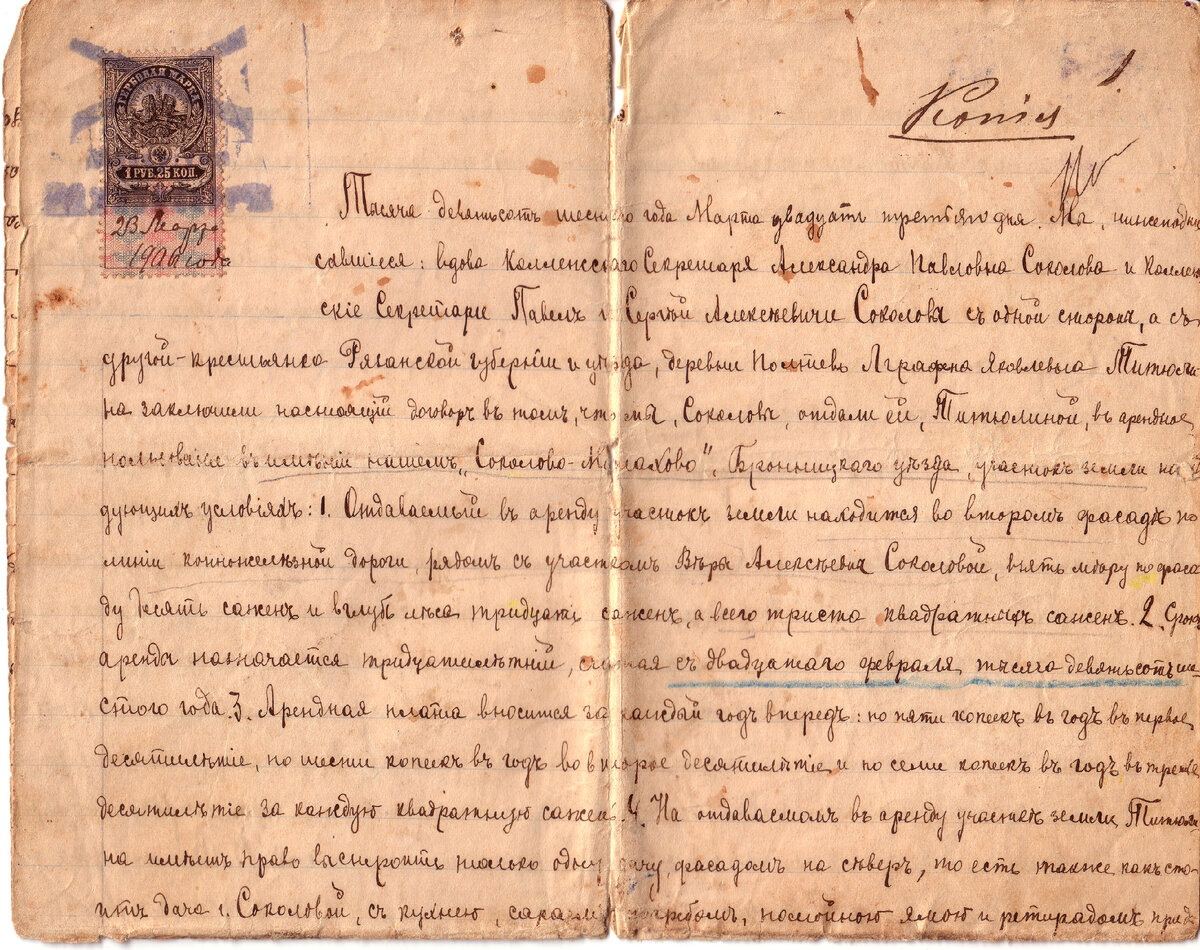 ГЕРБОВАЯ МАРКА
1 РУБ. 25 КОП.
23 Марта
1906 года
1
Копія
Тысяча девятьсотъ шестого года Марта двадцать третьяго дня. Мы, нижеподпи
савшіеся: вдова Коллежскаго Секретаря Александра Павловна Соколова и Коллеж
скіе Секретари Павелъ и Сергѣй Алексѣевичи Соколовы съ одной стороны, а съ
другой - крестьянка Рязанской губерніи и уѣзда, деревни Полтево Аграфена Яковлевна Титюли
на заключили настоящій договоръ въ томъ, что мы, Соколовы, отдали ей, Титюлиной, въ арендное
пользованіе въ имѣніи нашемъ „Соколово-Малахово", Бронницкаго уѣзда, участокъ земли на
дующихъ условіяхъ: 1. Отдаваемый въ аренду участокъ земли находится во второмъ фасадѣ по
линіи конножелѣзной дороги, рядомъ съ участкомъ Вѣры Алексѣевны Соколовой, мѣрою по фаса
ду десять саженъ и вглубь лѣса тридцать саженъ, а всего триста квадратныхъ саженъ. 2. Срокъ
аренды назначается тридцатилѣтній, считая съ двадцатаго февраля тысяча девятьсотъ ше-
стого года. 3. Арендная плата вносится за каждый годъ впередъ: по пяти копеекъ въ годъ въ первое
десятилѣтіе, по шести копеекъ въ годъ во второе десятилѣтіе и по семи копеекъ въ годъ въ третье
десятилѣтіе за каждую квадратную сажень. 4. На отдаваемомъ въ аренду участкѣ земли Титюли
на имѣетъ право выстроить только одну дачу, фасадомъ на сѣверъ, то есть также какъ сто-
итъ дача г. Соколовой, съ кухнею, сараемъ погребомъ, помойною ямою и ретирадомъ